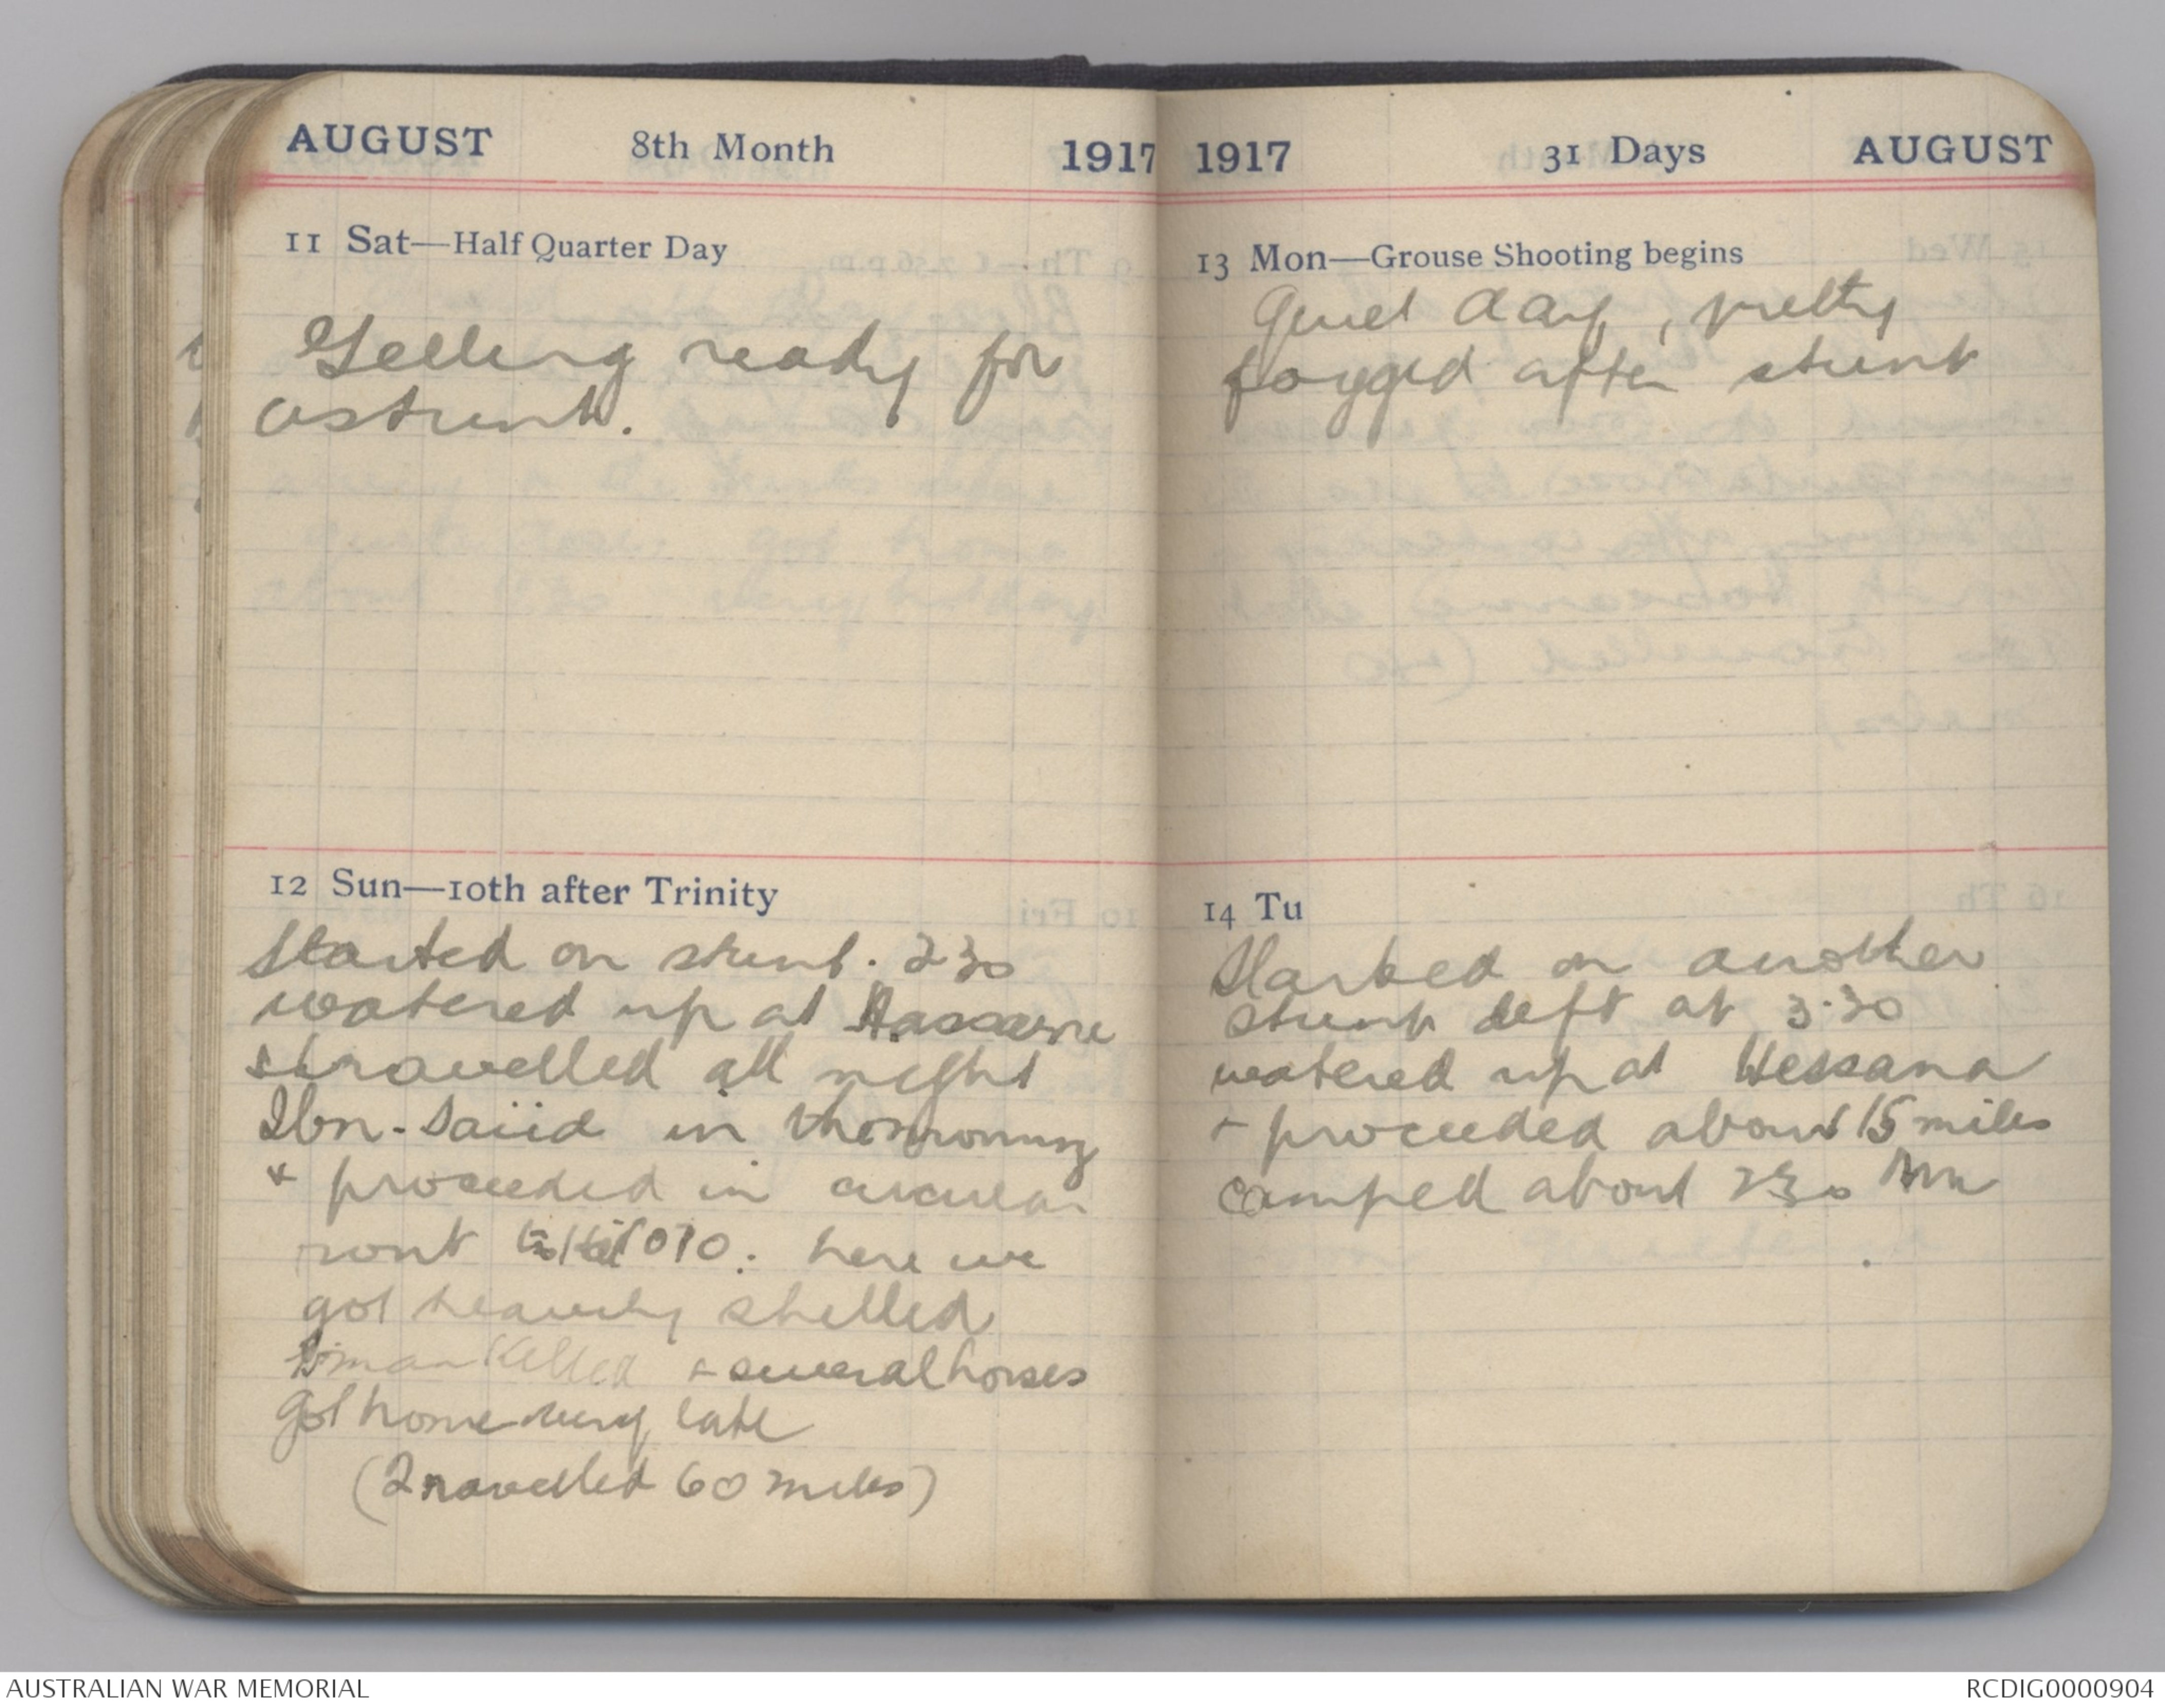 AUGUST 8th Month 1917
11 Sat—Half Quarter Day
Getting ready for
a stunt.
12 Sun—10th after Trinity
Started on stunt. 230
watered up at
& travelled all night
Ibn-Saiid in the morning
& proceeded in circular
rout 1070. here we
got heavily shelled
man killed & several horses
Got home very late
(Travelled 60 miles)
1917 31 Days AUGUST
13 Mon—Grouse Shooting begins
Quiet day, pretty
fogged after stunt
14 Tu
Started on another
stunt left at 3.30
watered up at Hessana
+ proceeded about 15 miles
camped about 230
AUSTRALIAN WAR MEMORIAL
RCDIG0000904